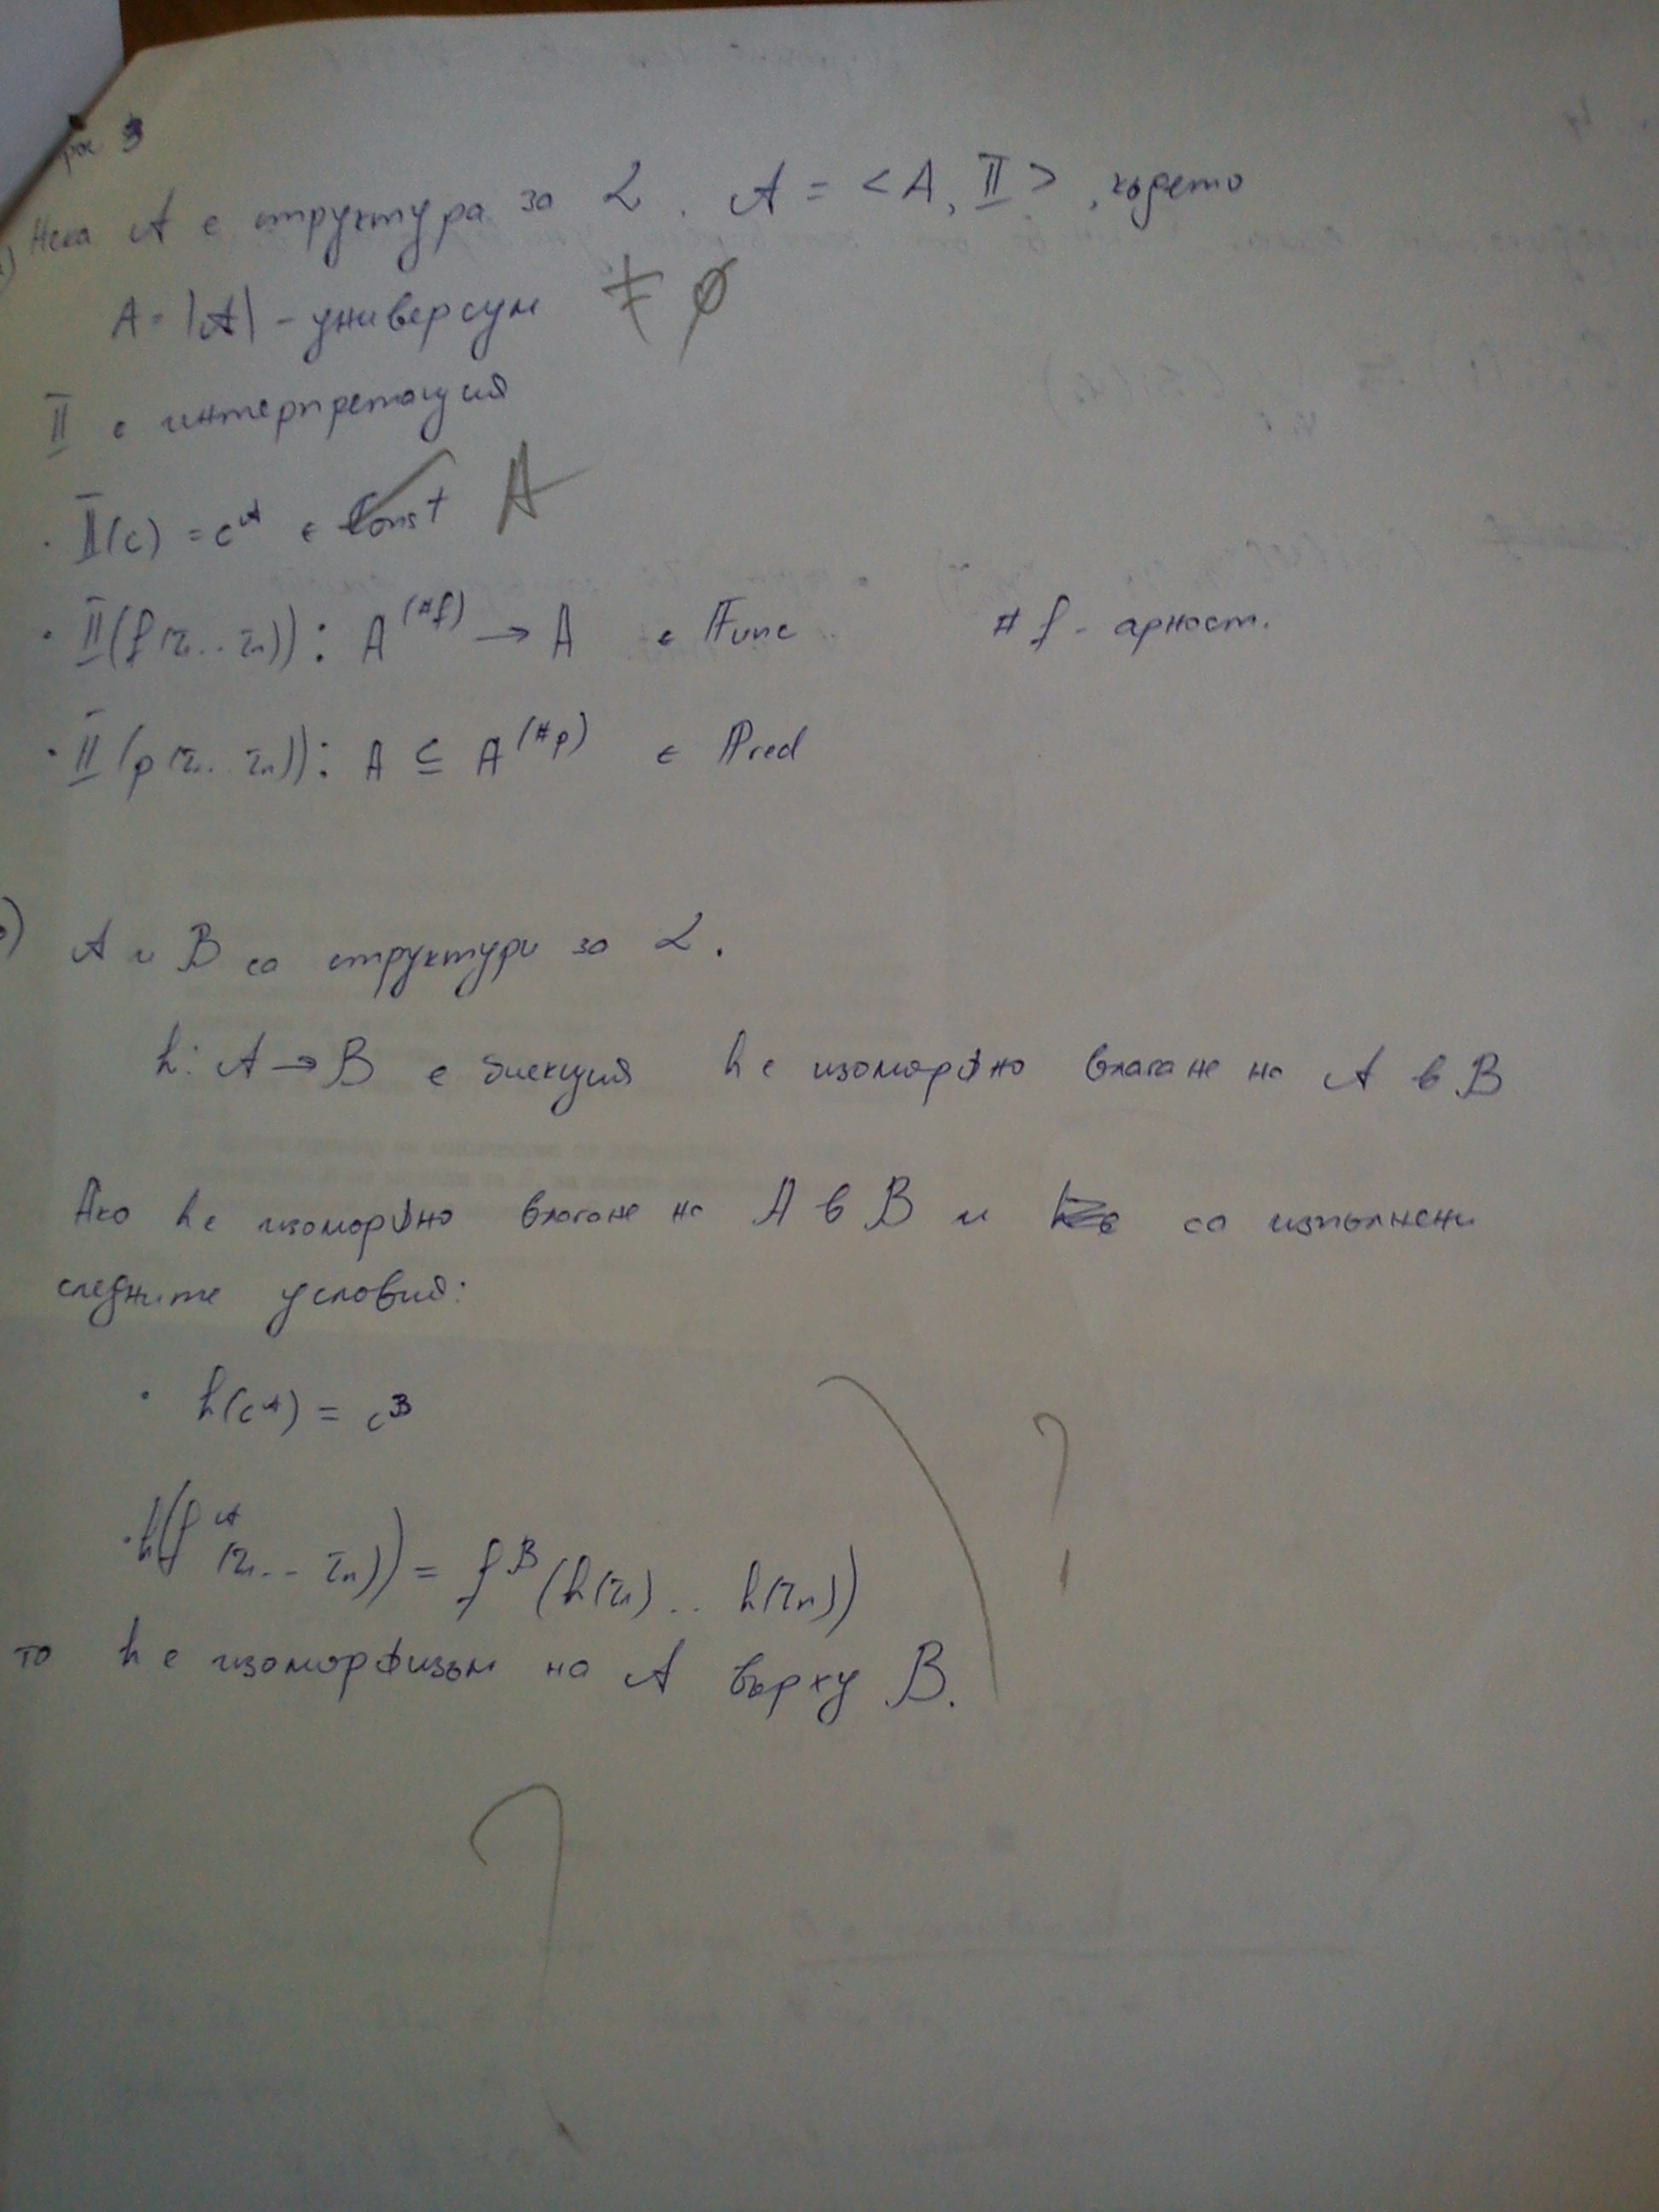 3
Нека 𝒜 е структура за ℒ. 𝒜 = <A, II>, където
A = |𝒜| - универсум ≠ ∅
II е интерпретация
· II(c) = c^𝒜 ∈ Const A
· II(f(τ₁...τₙ)): A^(#f) → A ∈ Func #f - арност.
· II(p(τ₁...τₙ)): A ⊆ A^(#p) ∈ Pred
𝒜 и B са структури за ℒ.
h: 𝒜 → B е биекция h е изоморфно влагане на 𝒜 в B
Ако h е изоморфно влагане на A в B и са изпълнени
следните условия:
· h(c^𝒜) = c^B
· h(f^𝒜(τ₁...τₙ)) = f^B(h(τ₁)...h(τₙ)) ?
то h е изоморфизъм на 𝒜 върху B.
?